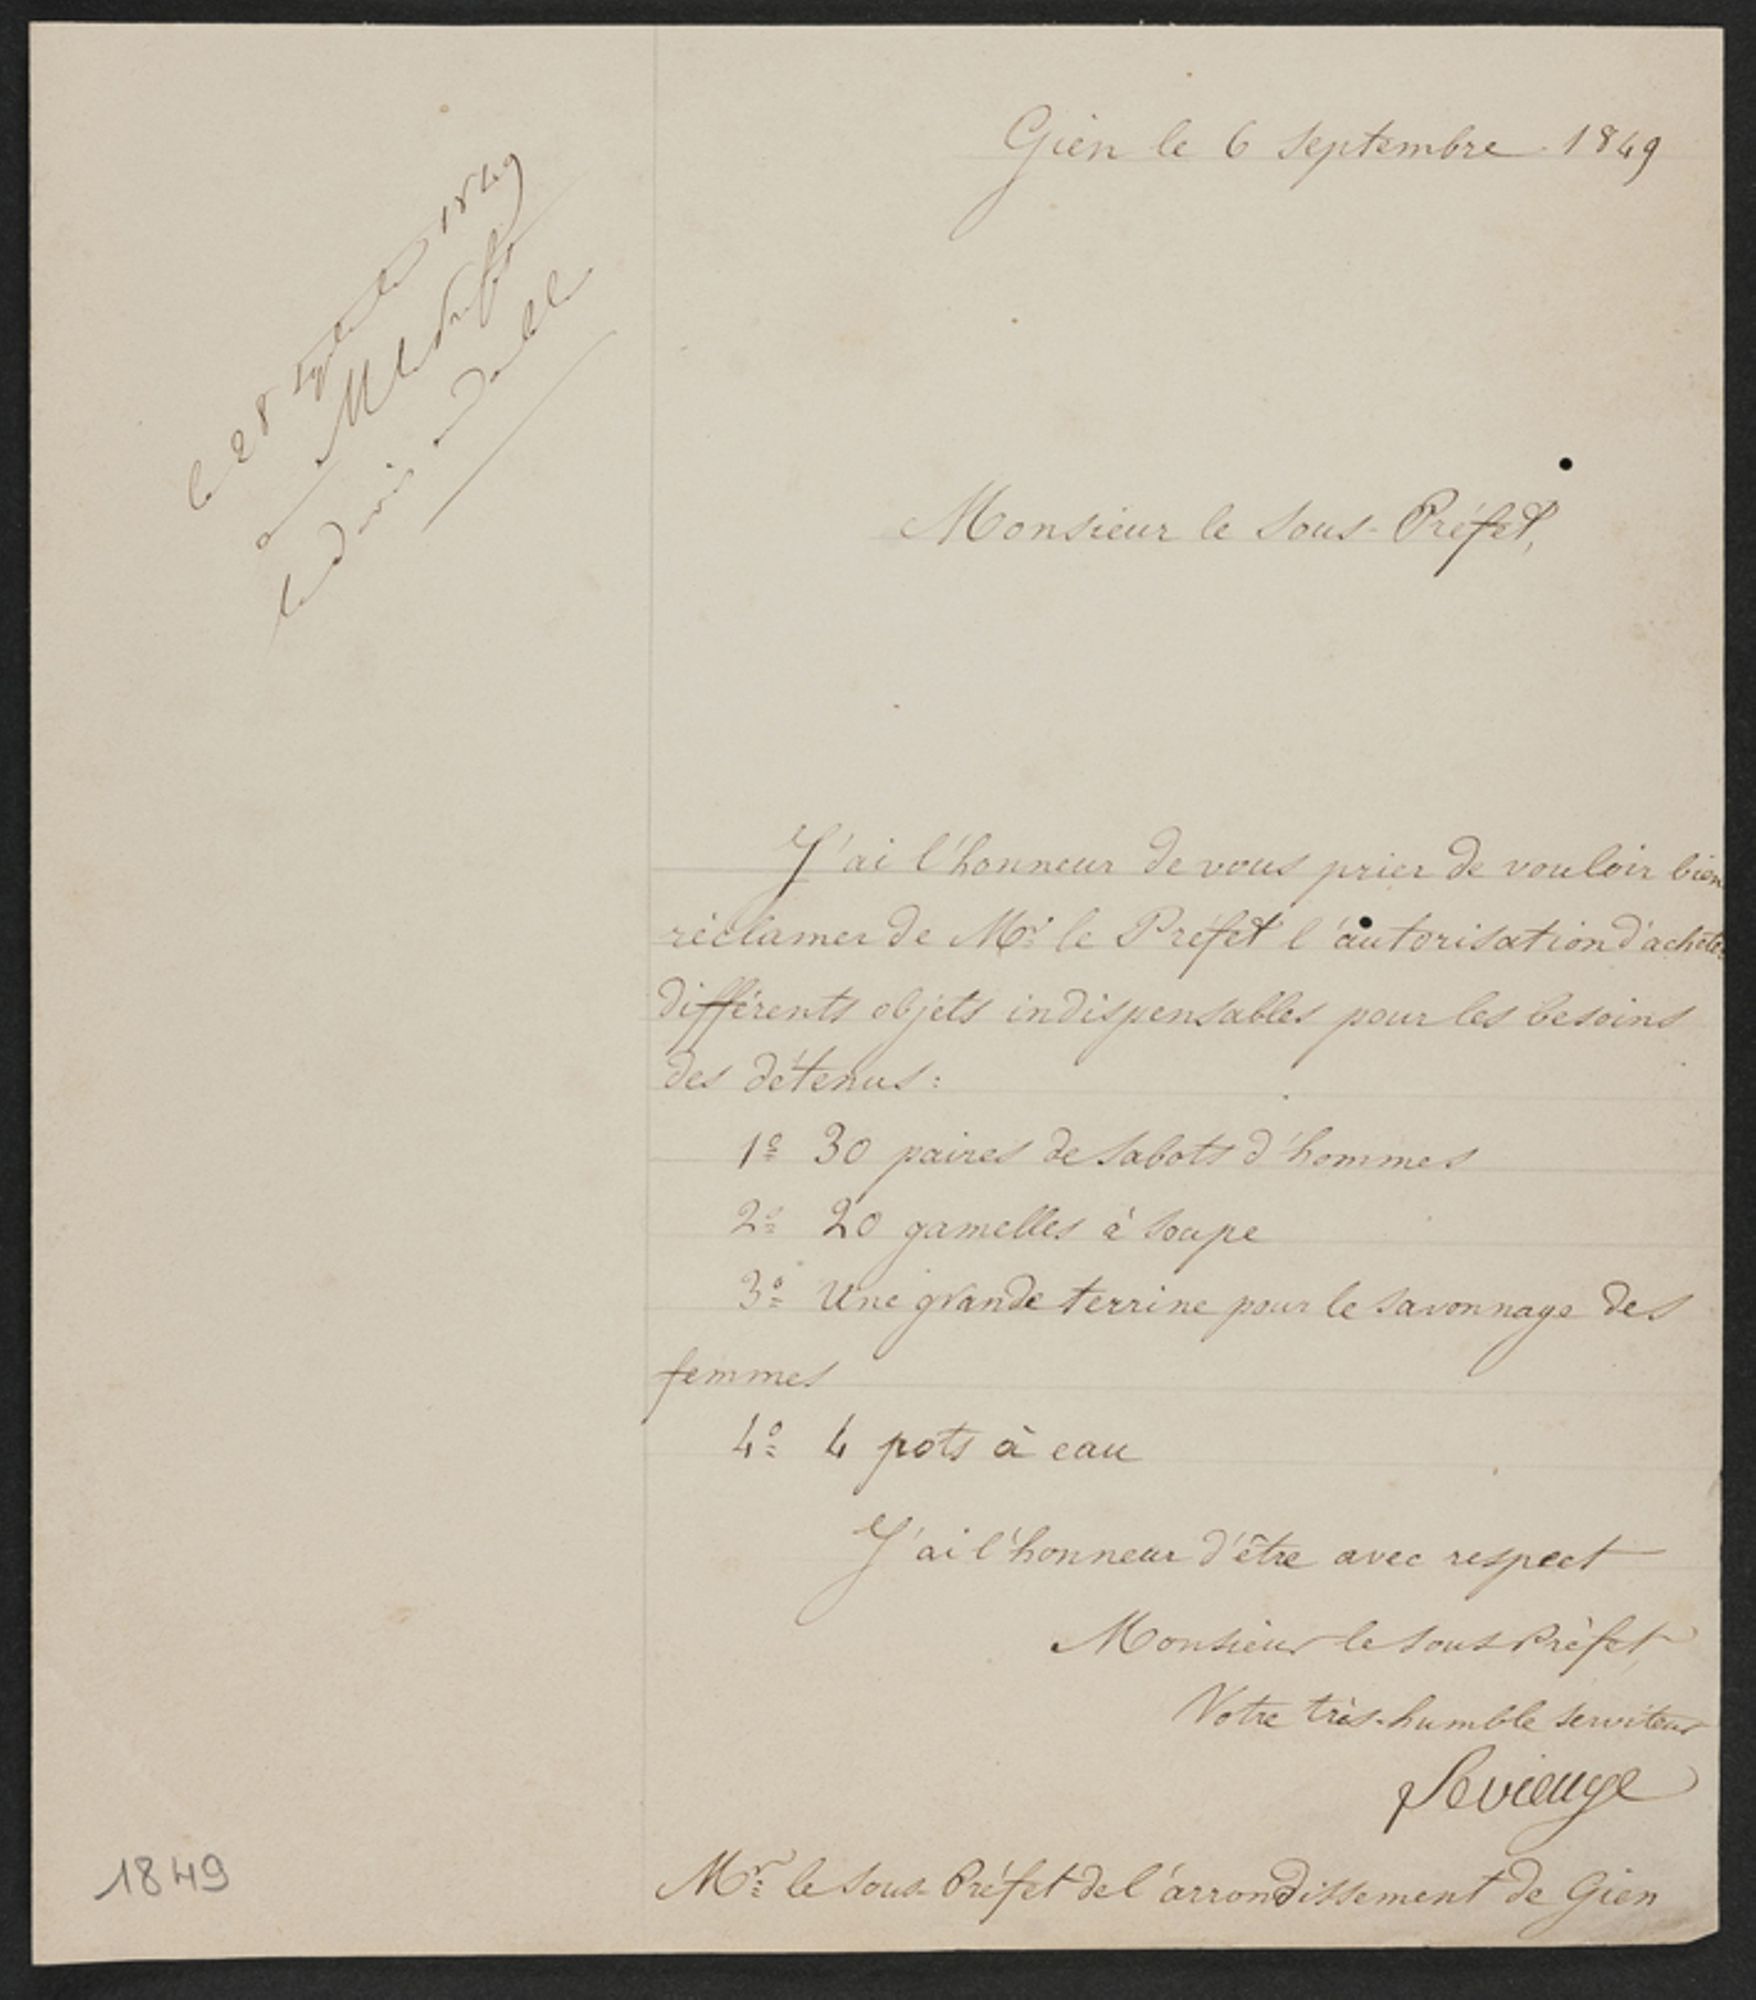 Gien le 6 Septembre 1849
le 28 septembre 1849
a M le Préfet
Monsieur le Sous-Préfet,
J'ai l'honneur de vous prier de vouloir bien
réclamer de Mr le Préfet l'autorisation d'acheter
différents objets indispensables pour les besoins
des détenus :
1º 30 paires de sabots d'hommes
2º 20 gamelles à soupe
3º Une grande terrine pour le savonnage des
femmes
4º 4 pots à eau
J'ai l'honneur d'être avec respect
Monsieur le Sous Préfet,
Votre très-humble serviteur
Mr le Sous-Préfet de l'arrondissement de Gien
1849